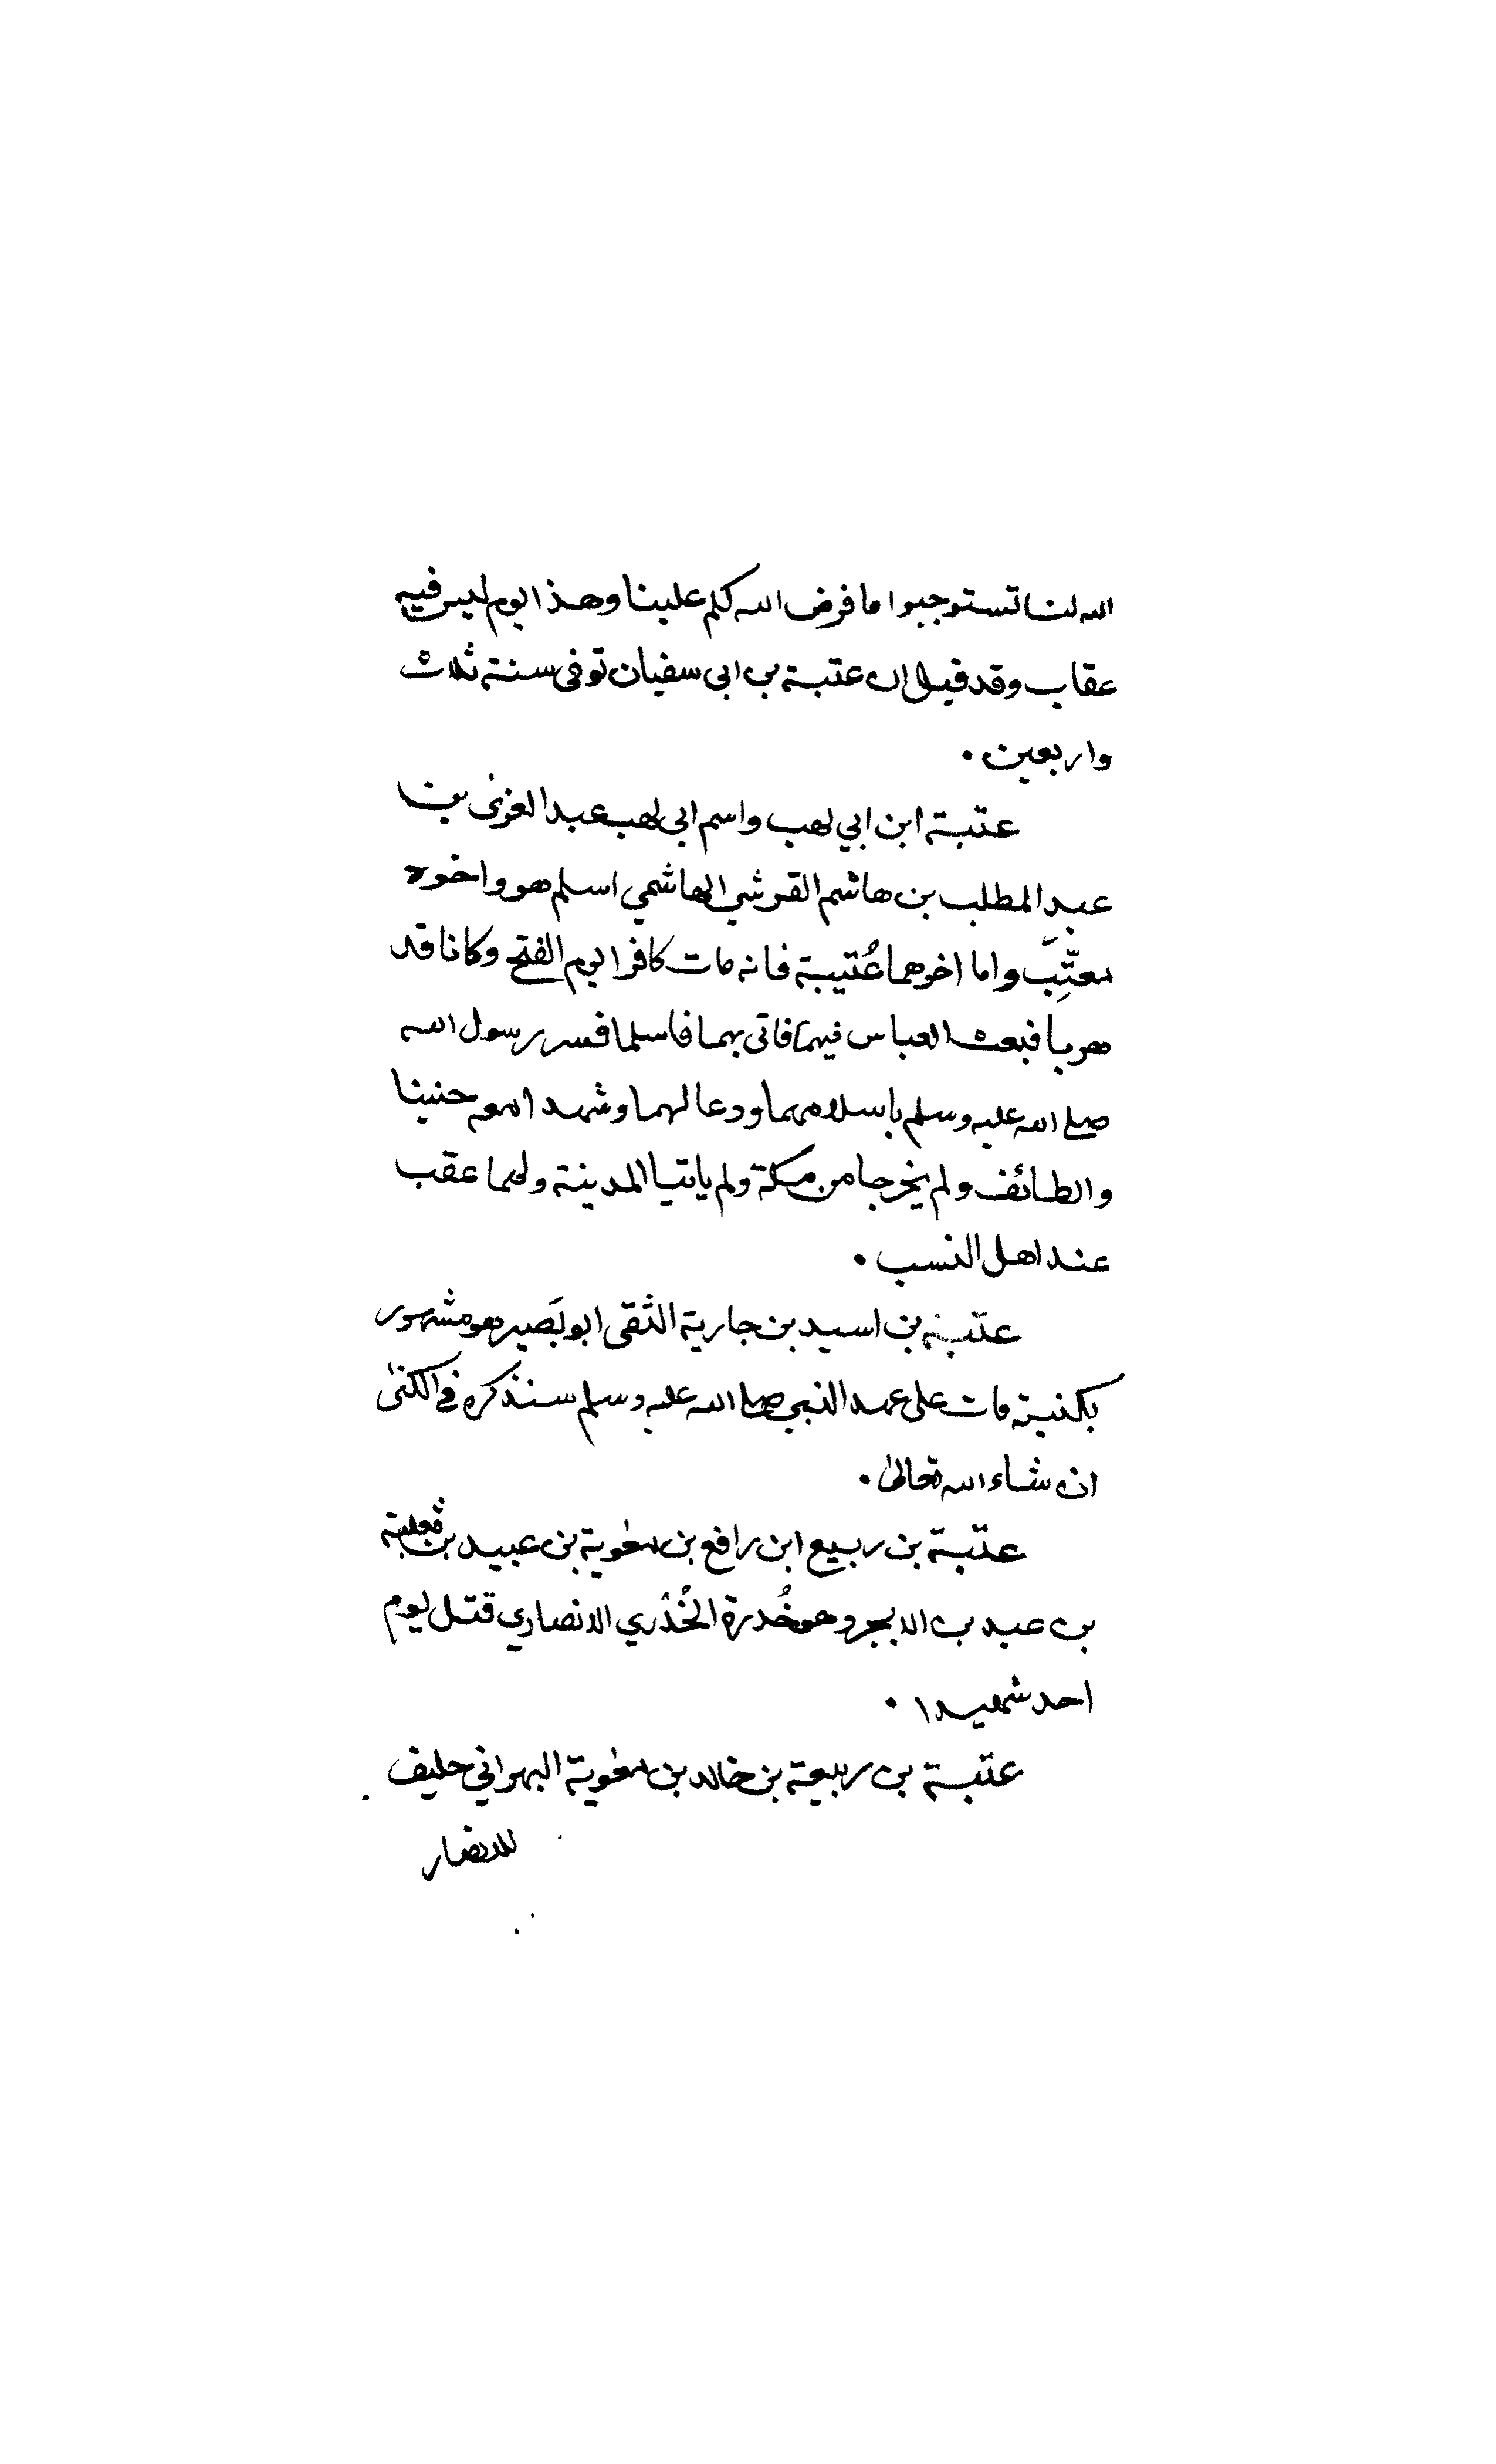 الله لنا تستوجبوا ما فرض الله لكم علينا وهذا يوم ليس فيه
عقاب وقد قيل ان عتبة بن ابى سفيان توفى سنة ثلاث
واربعين .
عتبة ابن ابي لهب واسم ابى لهب عبد العزى بن
عبد المطلب بن هاشم القرشي الهاشمي اسلم هو واخوه
معتِّبَ واما اخوهما عُتيبة فانه مات كافرا يوم الفتح وكانا قد
هربا فبعث العباس فيهما فاتى بهما فاسلما فسر رسول الله
صلى الله عليه وسلم باسلامهما ودعا لهما وشهدا معه حنينا
والطائف ولم يخرجا من مكة ولم ياتيا المدينة ولهما عقب
عند اهل النسب .
عتبة بن اسيد بن جارية الثقى ابو بَصير هو مشهور
بكنيته مات على عهد النبي صلى الله عليه وسلم سنذكره في الكنى
ان شاء الله تعالى .
عتبة بن ربيع ابن رافع بن معوية بن عبيد بن ثعلبة
بن عبد بن الابجر وهو خُدرة الخُدري الانصاري قتل يوم
احد شهيدا .
عتبة بن ربيعة بن خالد بن معوية البهراني حليف
للانصار